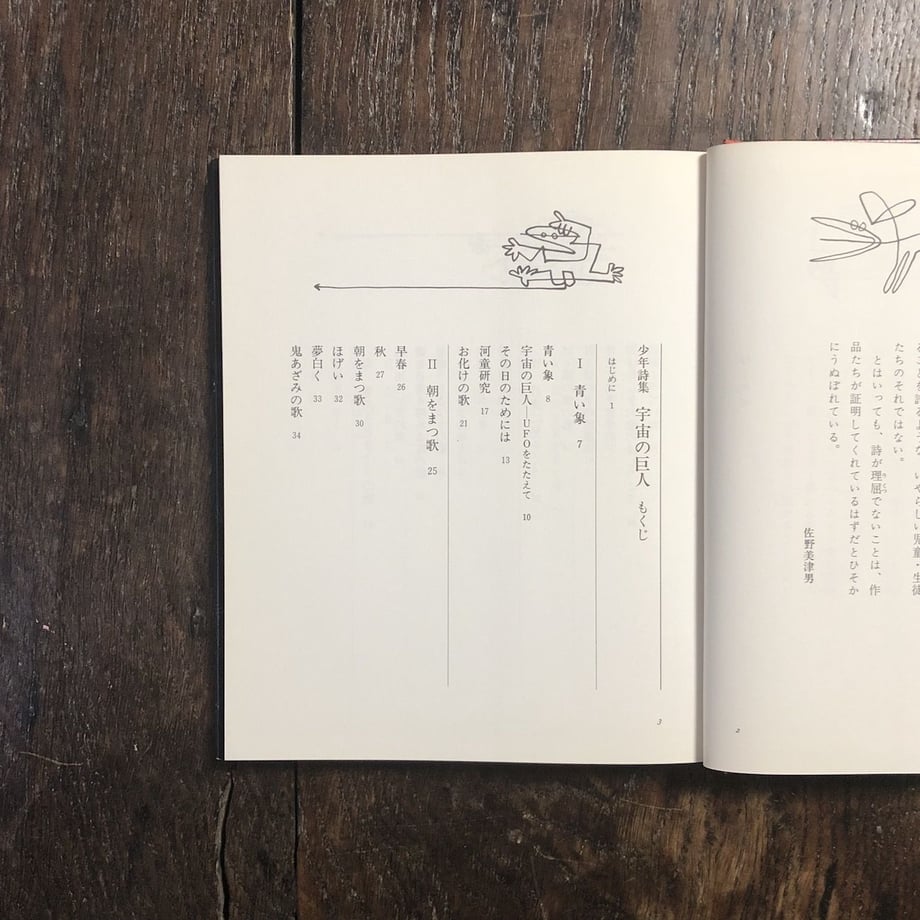 たちのそれではない。
とはいっても、詩が理屈でないことは、作
品たちが証明してくれているはずだとひそか
にうぬぼれている。
佐野美津男
2
少年詩集 宇宙の巨人 もくじ
はじめに 1
Ⅰ 青い象 7
青い象 8
宇宙の巨人―UFOをたたえて 10
その日のためには 13
河童研究 17
お化けの歌 21
Ⅱ 朝をまつ歌 25
早春 26
秋 27
朝をまつ歌 30
ほげい 32
夢白く 33
鬼あざみの歌 34
3